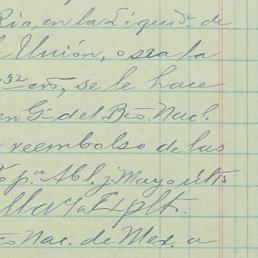 Río, en la Liquón de
Unión, o sea la
32 cro, se le hace
en G. del Bco. Nacl.
reembolso de las
p.a Abl. y Mayo últs
Expls.
Nac. de Mex. a